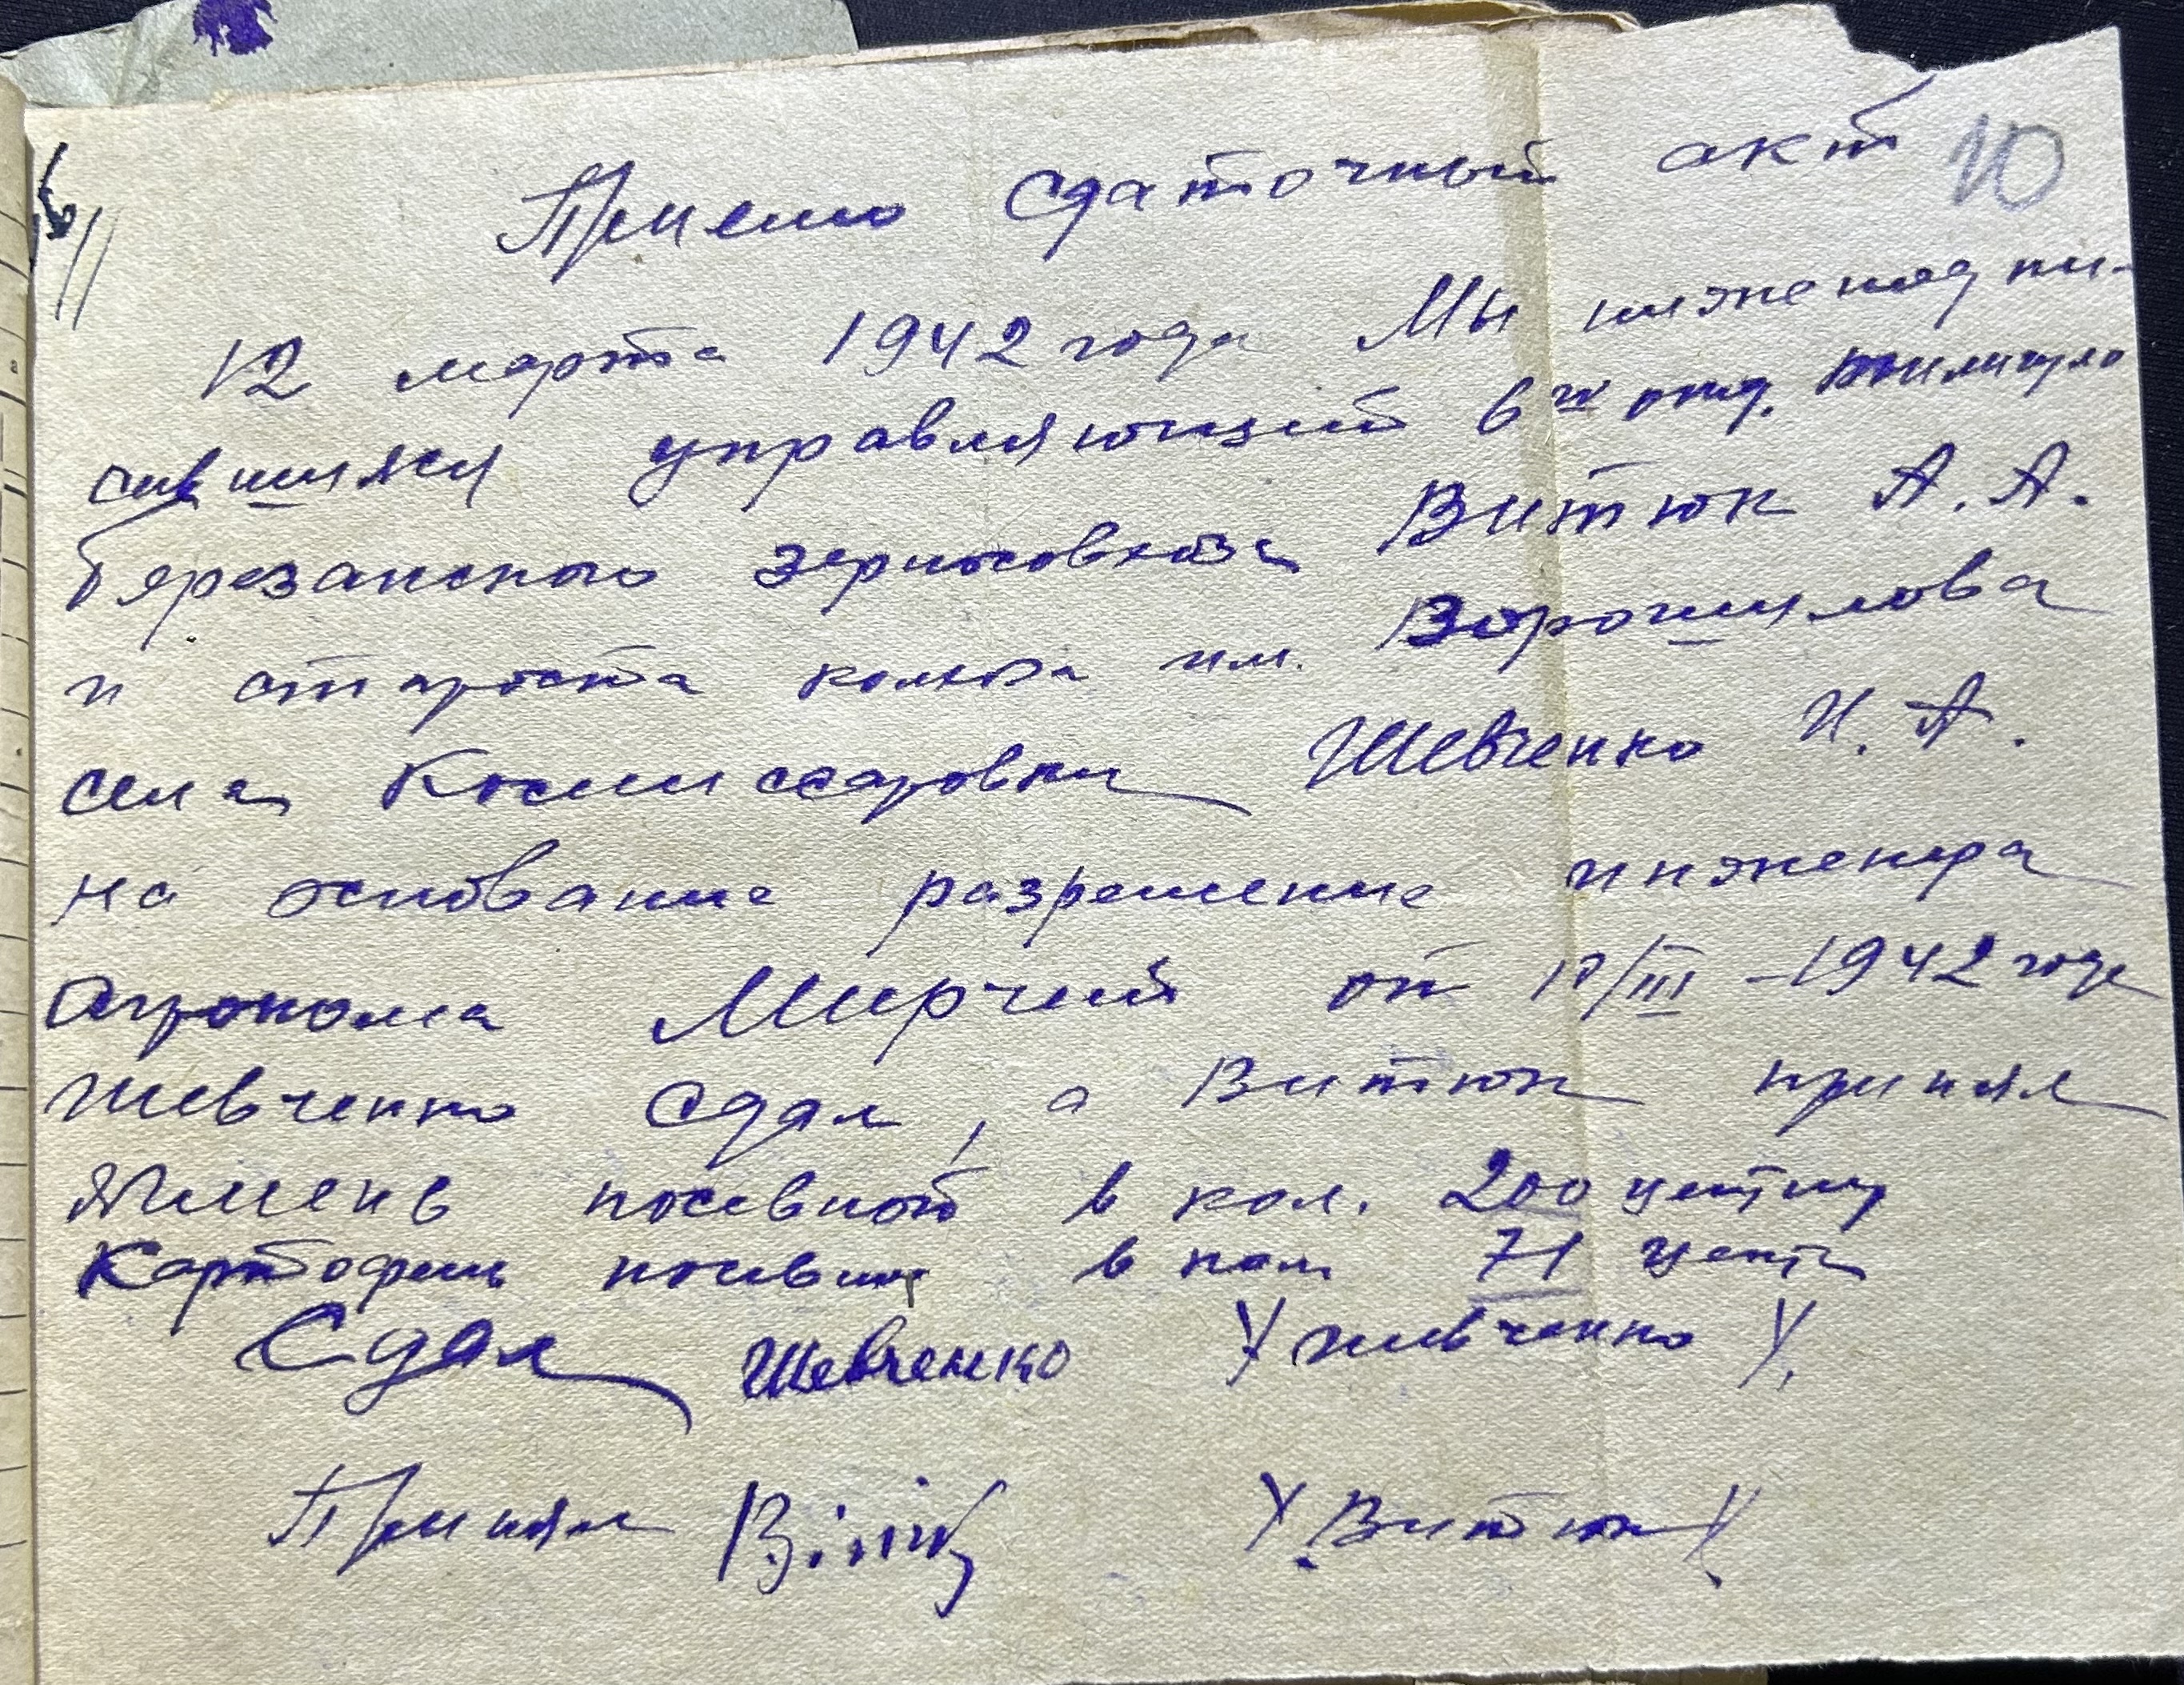 10
Приемо сдаточный акт
12 марта 1942 года Мы нижеподпи-
савшияся управляющий отд.
Березанского зерносовхоза Витюк А. А.
и староста колхоза им. Ворошилова
села Комиссаровки Шевченко И. А.
на основание разрешение инженера
агронома Мирчей от /III – 1942 года
Шевченко сдал, а Витюк принял
Ячмень посевной в кол. 200 центнер
Картофель посевной в кол 71 цент
Сдал Шевченко /Шевченко/.
Принял /Витюк/